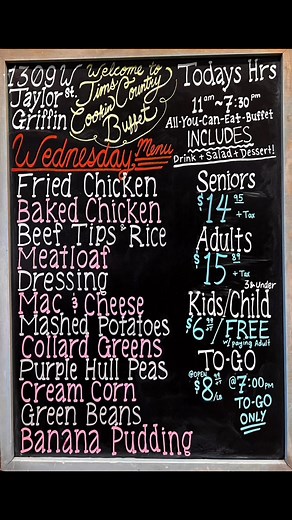 1309 W
Taylor St.
Griffin
Welcome to
Tims Country
Cookin
Buffet
Todays Hrs
11am~7:30pm
All-You-Can-Eat-Buffet
INCLUDES
Drink + Salad + Dessert!
Wednesday, Menu
Fried Chicken
Baked Chicken
Beef Tips & Rice
Meatloaf
Dressing
Mac & Cheese
Mashed Potatoes
Collard Greens
Purple Hull Peas
Cream Corn
Green Beans
Banana Pudding
Seniors
$14 95
+ Tax
Adults
$15 89
+ Tax
3 & Under
Kids/Child
$6 /FREE
w/ paying Adult
TO-GO
@OPEN
$8 /LB
@7:00PM
TO-GO
ONLY